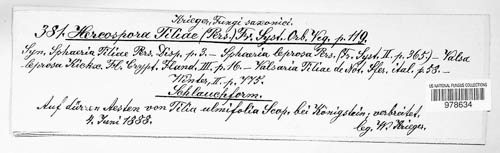 Krieger, Fungi saxonici.
381. Hercospora Tiliae (Pers.) Fr. Syst. Orb. Veg. p. 119.
Syn. Sphaeria Tiliae Pers. Disp. p. 3. — Sphaeria leprosa Pers. (Fr. Syst. II. p. 365.) — Valsa
leprosa Kickx. Fl. Crypt. Fland. III. p. 16. — Valsaria Tiliae de Not. Sfer. ital. p. 58. —
Winter, II. p. 775.
Schlauchform.
Auf dürren Aesten von Tilia ulmifolia Scop. bei Königstein, verbreitet.
4. Juni 1888.
leg. W. Krieger.
US NATIONAL FUNGUS COLLECTIONS
978634